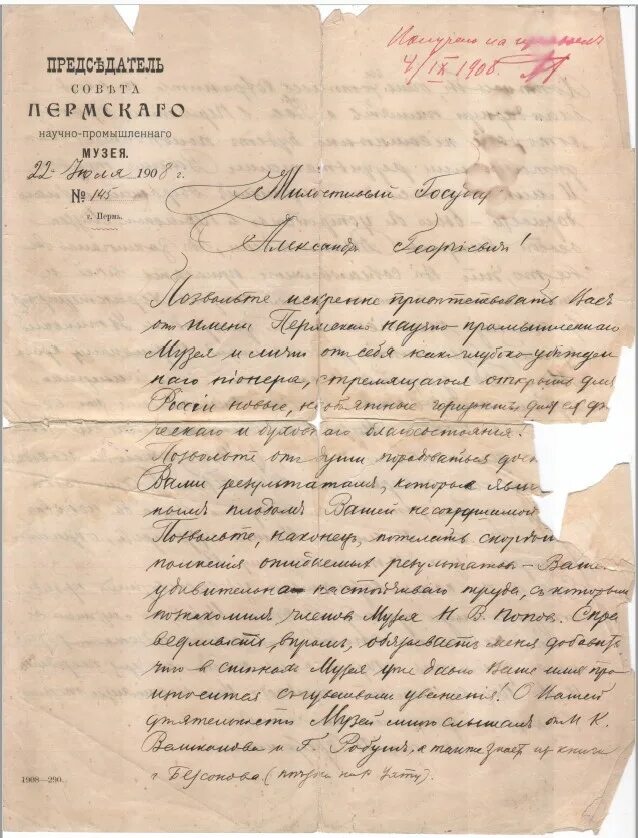 ПРЕДСѢДАТЕЛЬ
СОВѢТА
ПЕРМСКАГО
НАУЧНО-ПРОМЫШЛЕННАГО
МУЗЕЯ.
22 Июля 1908 г.
№ 145
г. Пермь.
Получено на
4/IX 1908.
Милостивый Госуд
Александръ Георгіевичъ!
Позвольте искренне привѣтствовать Васъ
отъ имени Пермскаго научно-промышленнаго
Музея и лично отъ себя какъ глубоко-убѣжден
наго піонера, стремящагося открыть для
Россіи новые, необъятные горизонты для ея фи
ческаго и духовнаго благосостоянія.
Позвольте отъ души порадоваться дос
Вами результатамъ, которые яви
плодомъ Вашей несокрушимой
Позвольте, наконецъ, пожелать скорой
полненія ожидаемыхъ результатовъ – Ваше
удивительно настойчиваго труда, съ которым
познакомилъ членовъ Музея Н. В. Поповъ. Спра
ведливость, впрочемъ, обязываетъ меня добавить
что в стѣнахъ Музея уже давно Ваше имя про
износится съ чувствомъ уваженія! О Вашей
дѣятельности Музей много слышалъ отъ М. К.
и Г. Робушъ, а также знаетъ из книги
г. Безсонова (поѣздка на Ухту).
1908—290.